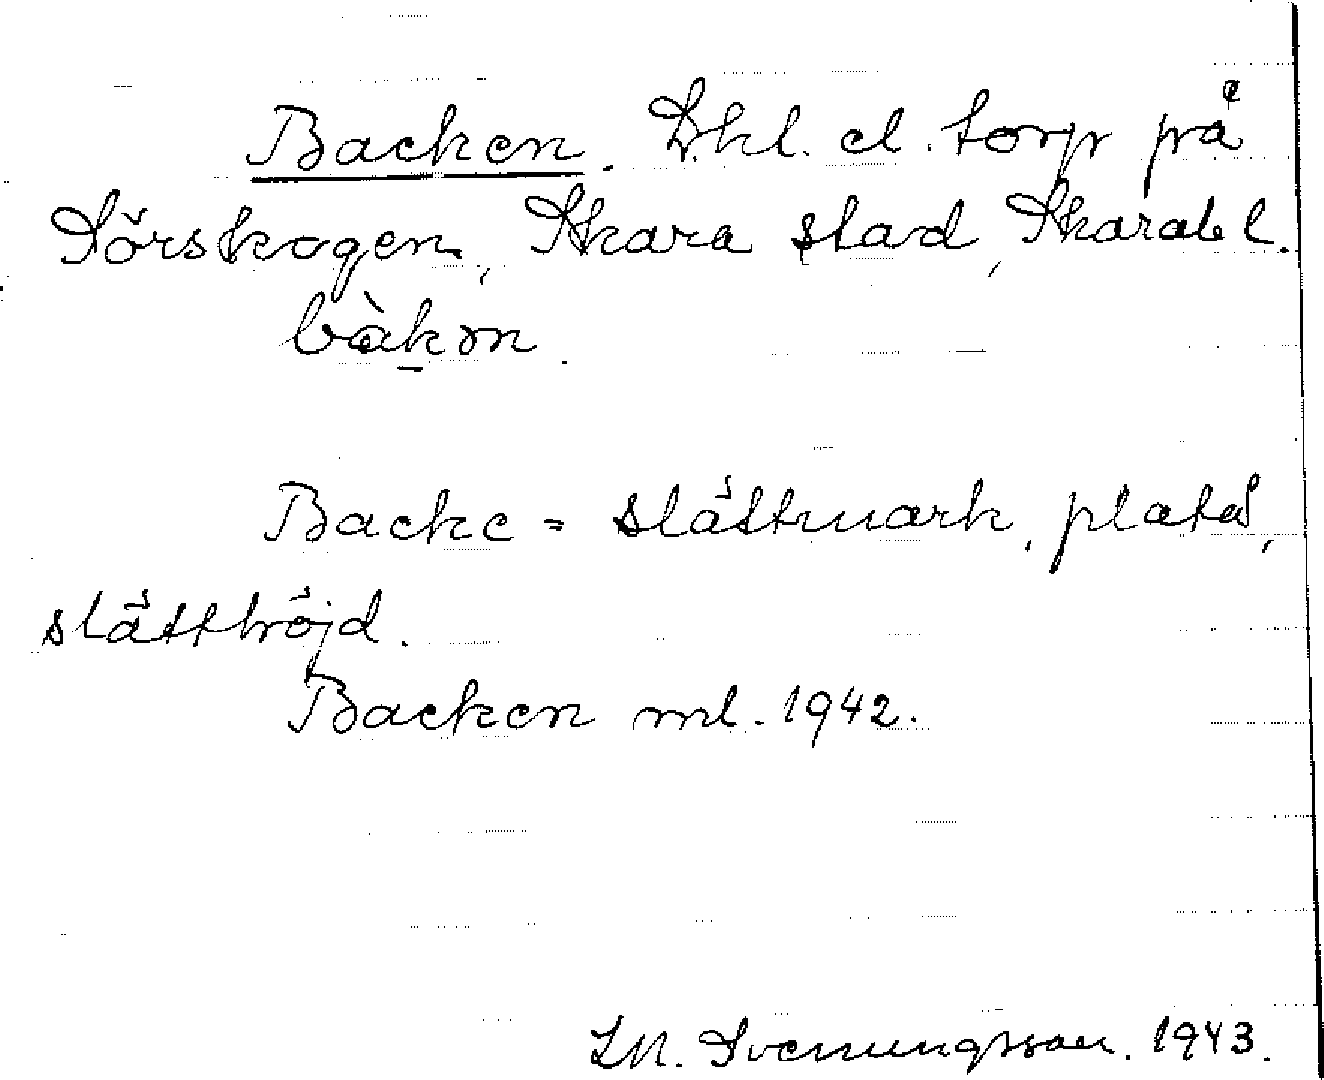 Backen. Lhl. el. torp på
Sörskogen, Skara stad, Skarab l.
bàkɷn.
Backe = slättmark, platå,
slätthöjd.
Backen ml. 1942.
Svenungsson. 1943.